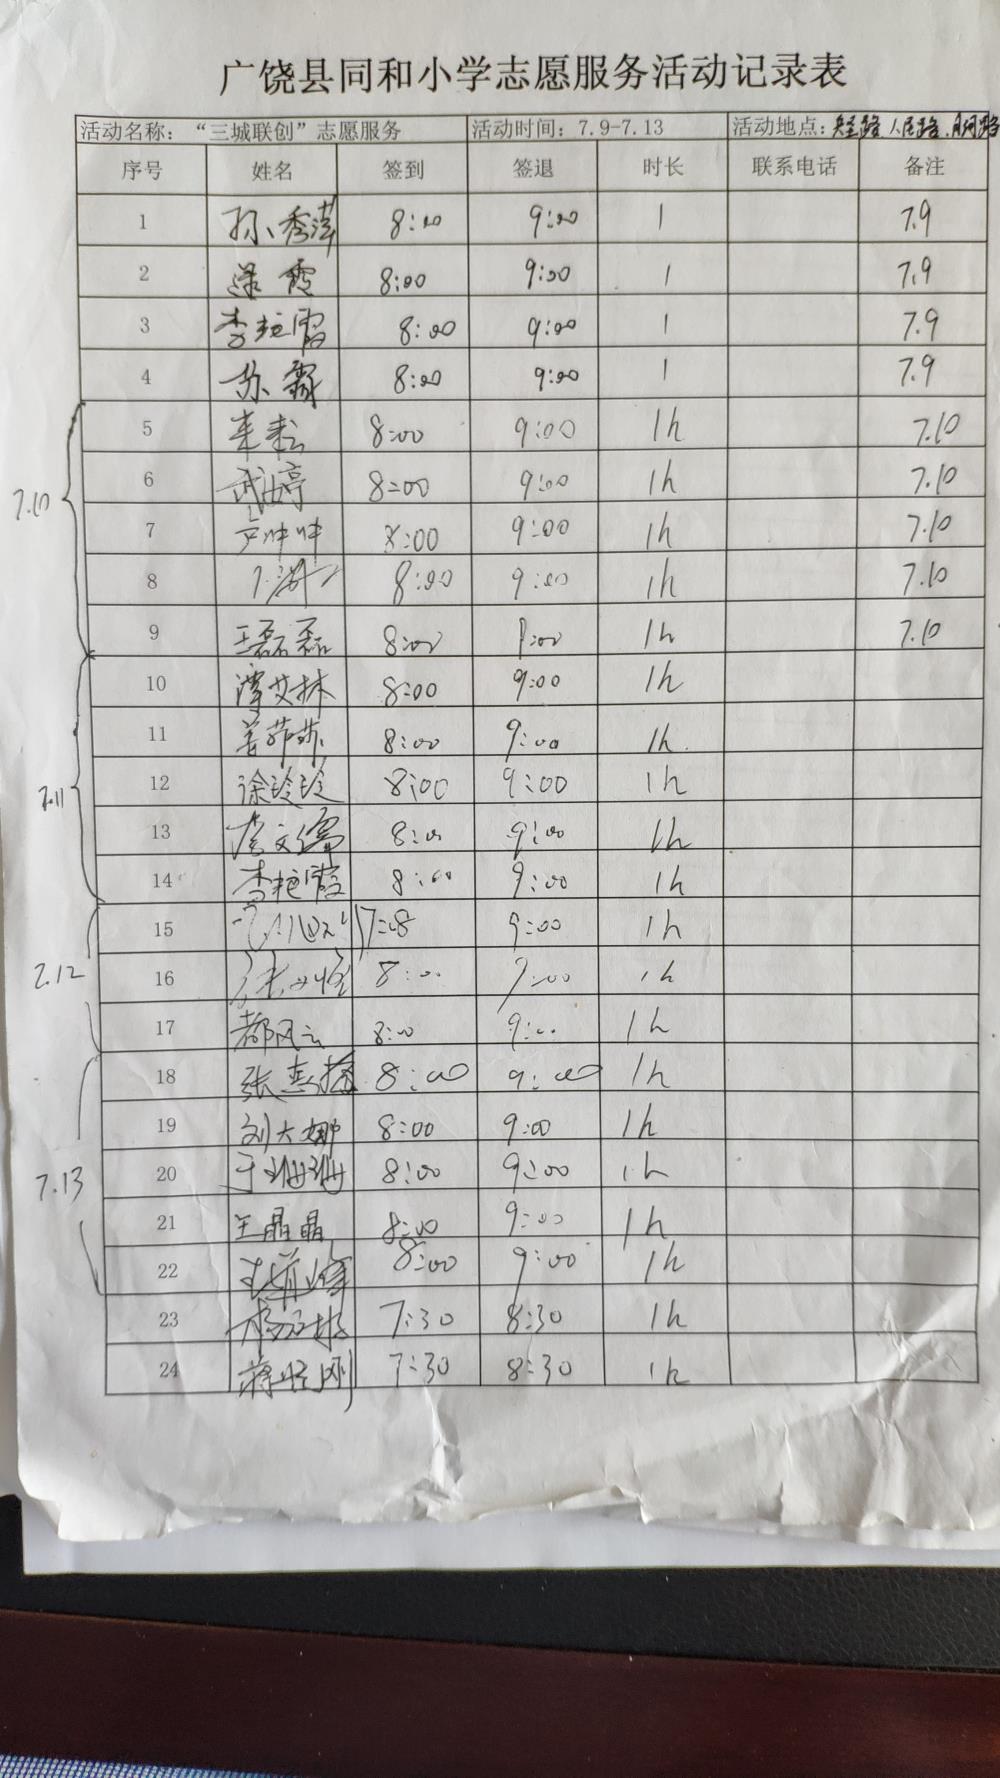 广饶县同和小学志愿服务活动记录表
活动名称：“三城联创”志愿服务 活动时间：7.9-7.13 活动地点： 人民路
序号 姓名 签到 签退 时长 联系电话 备注
1 孙秀萍 8:00 9:00 1 7.9
2 逯霞 8:00 9:00 1 7.9
3 李艳霞 8:00 9:00 1 7.9
4 苏霖 8:00 9:00 1 7.9
5 8:00 9:00 1h 7.10
7.10
6 武婷 8:00 9:00 1h 7.10
7 8:00 9:00 1h 7.10
8 8:00 9:00 1h 7.10
9 王磊磊 8:00 9:00 1h 7.10
10 8:00 9:00 1h
11 8:00 9:00 1h
7.11
12 徐玲玲 8:00 9:00 1h
13 8:00 9:00 1h
14 李艳霞 8:00 9:00 1h
15 9:00 1h
7.12
16 8:00 9:00 1h
17 都风云 8:00 9:00 1h
18 8:00 9:00 1h
19 刘大娜 8:00 9:00 1h
7.13
20 于珊珊 8:00 9:00 1h
21 王晶晶 8:00 9:00 1h
22 8:00 9:00 1h
23 7:30 8:30 1h
24 7:30 8:30 1h